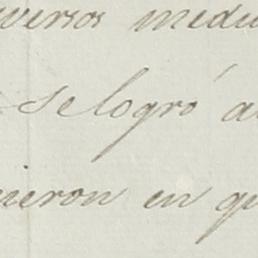 versos medi
se logró a
ieron en qu